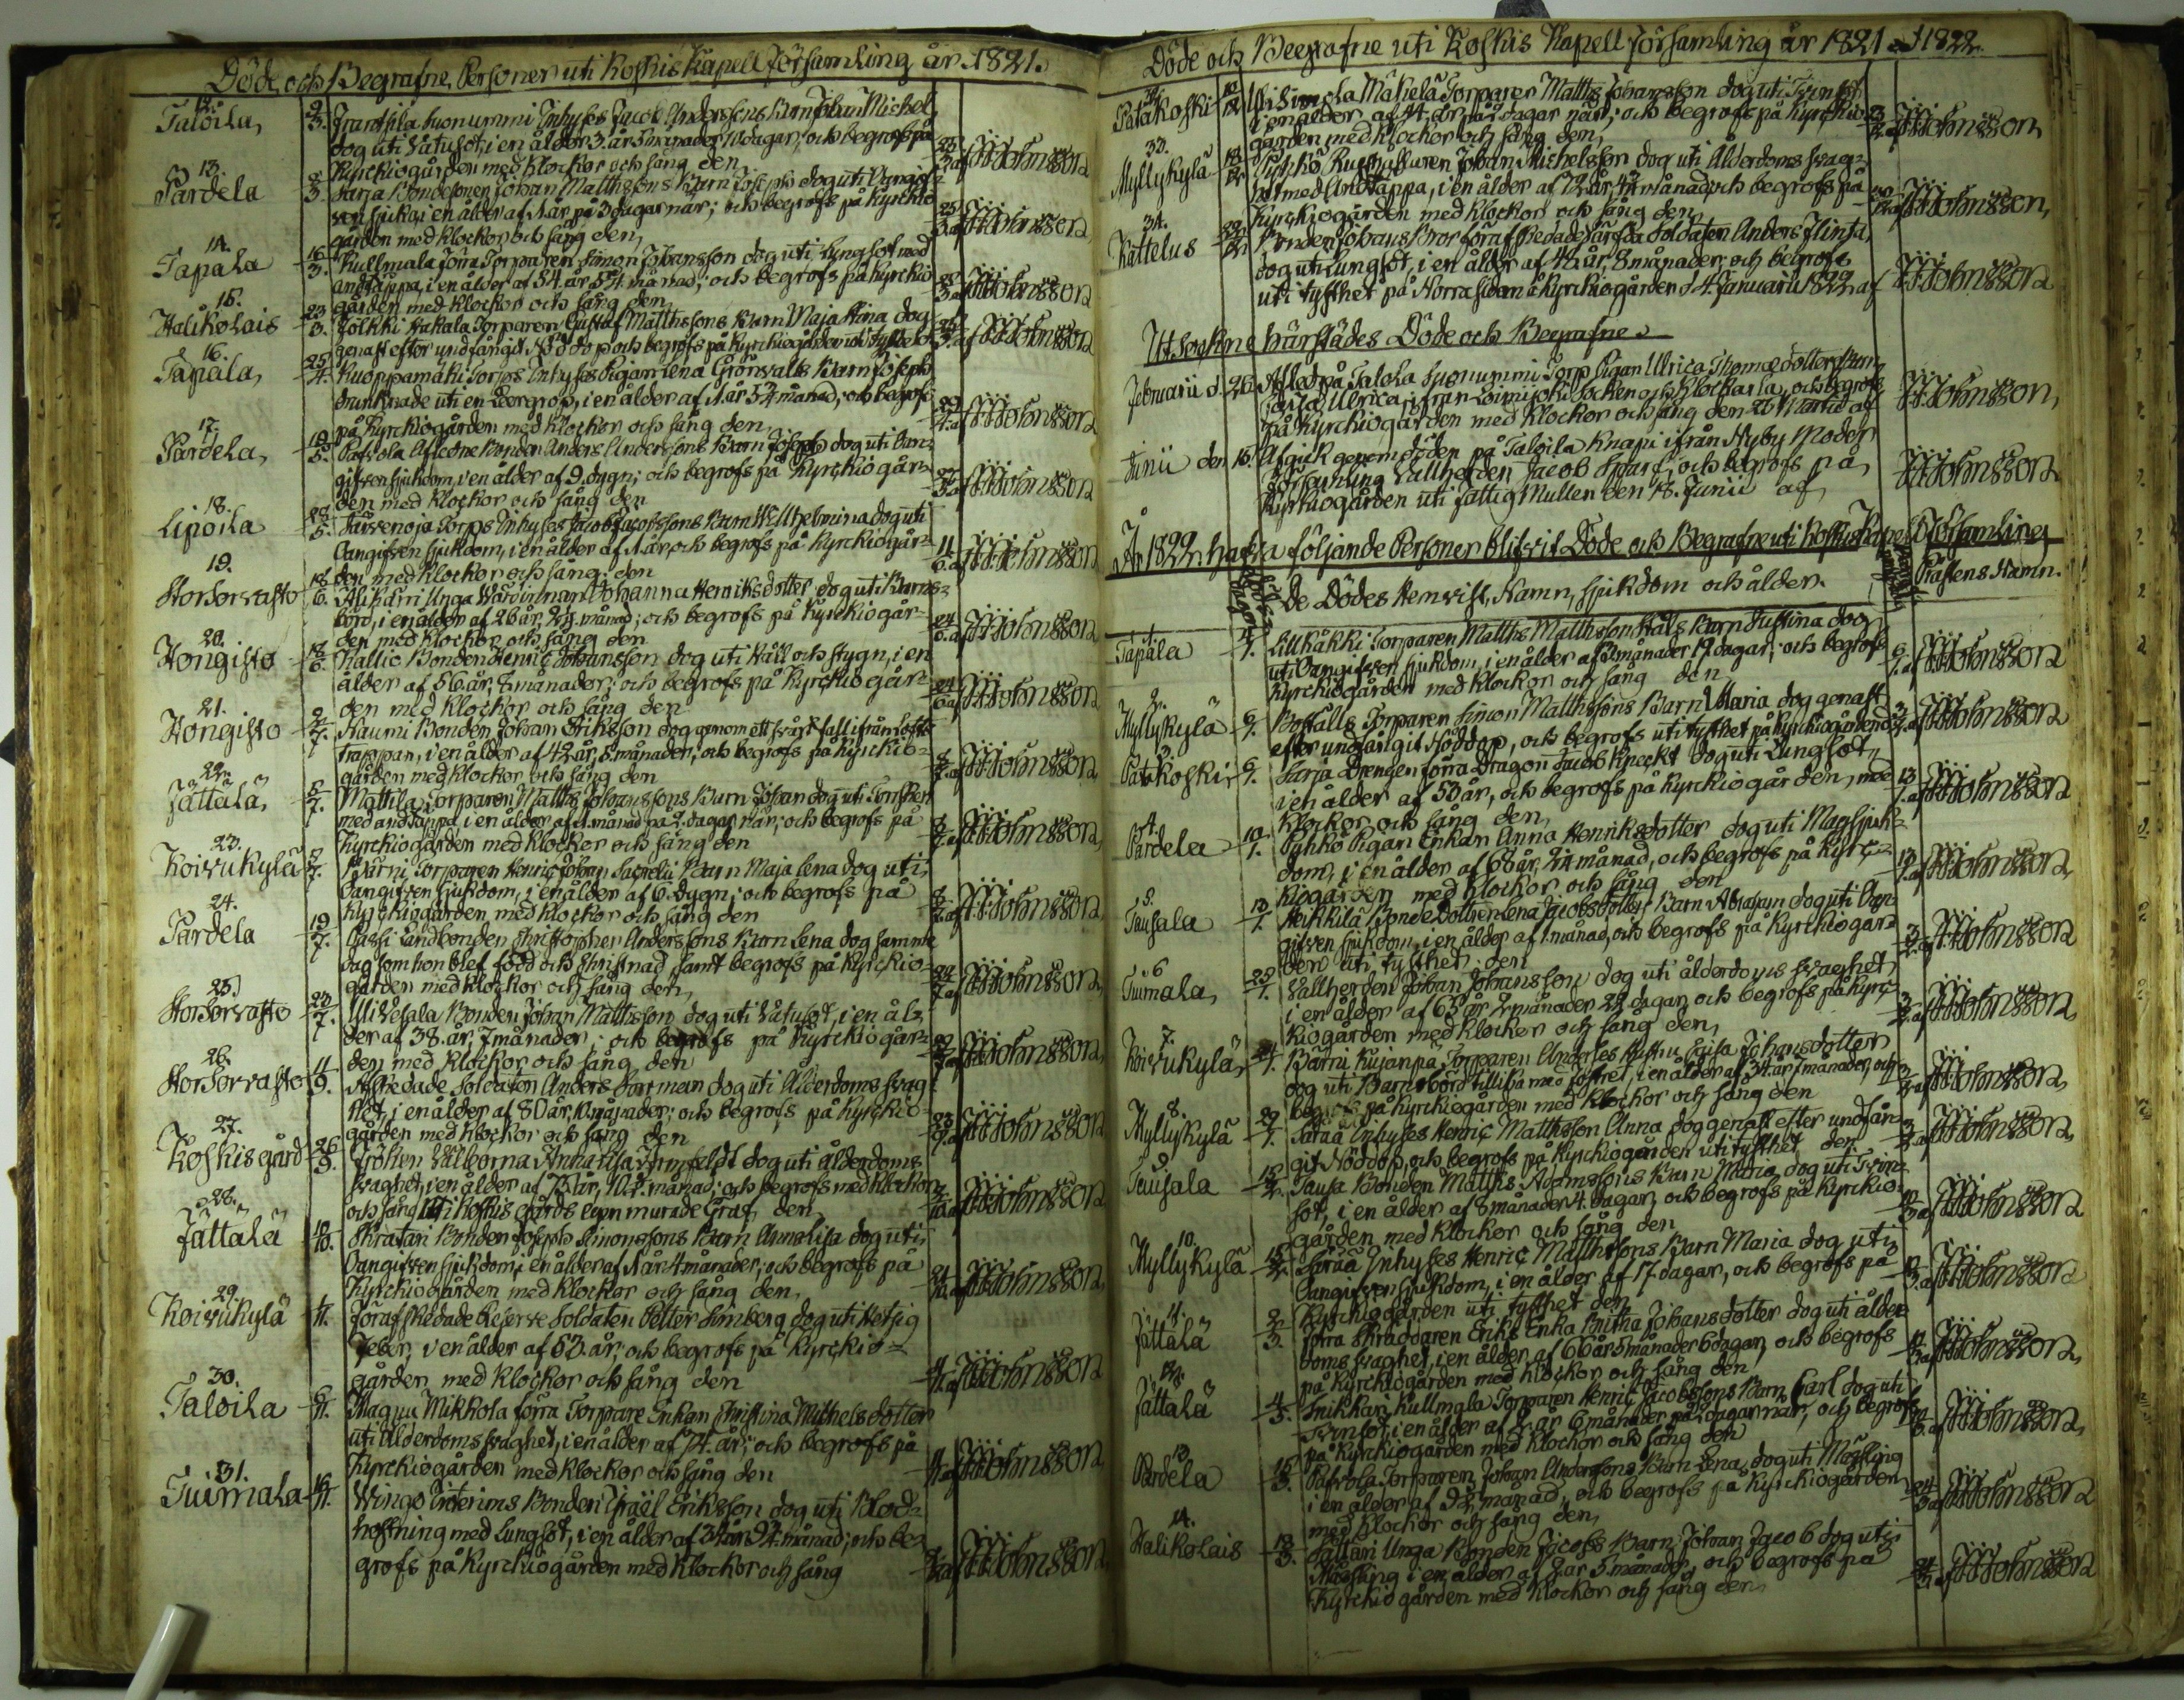 Döde och Begrafne Personer uti Koskis Kapell Församling år 1821.
12.
Taloila, 9/3. Inhyses Jacob Anderssons Barn Johan Michel
dog uti Vatusot, i en ålder 3. år 3 månader 10 dagar; och begrofs på
Kyrckiogården med klockor och sång den 25/3. af J. J. Johnsson
13.
Pardela 3. Sarja Bondesonen Johan Matthssons Barn Joseph dog uti Oangif-
ven sjukd. i en ålder af 1. år på 3 dagar när; och begrofs på Kyrckio
gården med klockor och sång den, 25/3. af J. J. Johnsson
14.
Tapala 16/3. Kullmala förra Torparen Simon Johansson dog uti Lungsot med
andtäppa, i en ålder af 54. år månad; och begrofs på kyrckio
gården med klockor och sång den 3. af J. J. Johnsson
15.
Halikolais 23/3. Torparen Gustaf Matthssons Barn Maja Stina dog
genast efter undfångit Nöddop och begrofs på Kyrckiogården uti tysthet d. 25/3. af J. J. Johnsson
16.
Tapala, 25/4. Kuoppamäki Torps Inhyses Pigan Lena Grönvalls Barn Joseph
drunknade uti en Leergrop, i en ålder af 1. år månad; och begrofs
på Kyrckiogården med klockor och sång den, 29/4. af J. J. Johnsson
17.
Pardela, 19/5. Bonden Anders Anderssons Barn Joseph dog uti Oan-
gifven sjukdom, i en ålder af 9. dygn; och begrofs på Kyrckiogår-
den med klockor och sång den 5. af J. J. Johnsson
18.
Lipoila 5. Torps Inhyses Jacob Jacobssons Barn Wilhelmina dog uti
Oangifven sjukdom, i en ålder af 1. år, och begrofs på Kyrckiogår-
den med klockor och sång den 11/6. af J. J. Johnsson
19.
Storsorvasto 18/6. Alikärri Unga Wärdinnan Johanna Henriksdotter dog uti Barns-
börd, i en ålder af 26 år, månad; och begrofs på kyrckiogår-
den med klockor och sång den 24/6. af J. J. Johnsson
20.
Hongisto 18/6. Kallio Bonden Henric Johansson dog uti Håll och stygn, i en
ålder af 56. år, månader; och begrofs på kyrckiogår-
den med klockor och sång den 24/6. af J. J. Johnsson
21.
Hongisto 2/7. Naumi Bonden Johan Eriksson dog genom ett svårt fall ifrån Lofts
trappan, i en ålder af 42 år, 5. månader; och begrofs på kyrckio-
gården med klockor och sång den 8/7. af J. J. Johnsson
22.
Jättälä, 5/7. Mattila Torparen Matths Johanssons Barn Johan dog uti Torsken
med andtäppa i en ålder af 1. månad på 2. dagar när; och begrofs på
Kyrckiogården med klockor och sång den 8/7. af J. J. Johnsson
23.
Koivukylä 5/7. Bärni Torparen Henric Johan Barn Maja Lena dog uti
Oangifven sjukdom, i en ålder af 6. dygn; och begrofs på
Kyrckiogården, med klockor och sång den 8/7. af J. J. Johnsson
24.
Pardela 19/7. Passi Landbonden Christopher Anderssons Barn Lena dog samma
dag som hon blef född och Christnad, samt begrofs på Kyrckio-
gården med klockor och sång den, 22/7. af J. J. Johnsson
25.
Storsorvasto 23/7. Bonden Johan Matthsson dog uti Vatusot, i en ål-
der af 38. år, 7 månader; och begrofs på Kyrckiogår-
den med klockor och sång den 29/7. af J. J. Johnsson
26.
Storsorvasto 11/9. Afskedade Soldaten Anders Forsman dog uti Ålderdoms svag-
het, i en ålder af 80 år, 10 månader; och begrofs på kyrckio-
gården med klockor och sång den 23/9. af J. J. Johnsson
27.
Koskis gård 26/9. Fröken Välborna Anna Lisa Armfeldt dog uti ålderdoms
svaghet, i en ålder af år, månad; och begrofs med klockor
och sång uti Koskis gårds egen murade Graf, den, 10. af J. J. Johnsson
28.
Jättälä 10/10. Skrätari Bonden Joseph Simonssons Barn Annalisa dog uti
Oangifven sjukdom, i en ålder af 1 år 4 månader; och begrofs på
Kyrckiogården med klockor och sång den, 21/10. af J. J. Johnsson
29.
Koivukylä 11. Förafskedade Reserve Soldaten Petter Limberg dog uti Hetsig
Feber, i en ålder af 63. år, och begrofs på Kyrckio-
gården med klockor och sång den 11. af J. J. Johnsson
30.
Taloila 6/11. Magnu Mikkola förra Torpare Enkan Christina Mithelsdotter
uti Ålderdomssvaghet, i en ålder af 74. år; och begrofs på
Kyrckiogården med klockor och sång den 11/11. af J. J. Johnsson
31.
Tuimala 16/11. Wingo Interims Bonden Israël Eriksson dog uti Blod-
hostning med Lungsot, i en ålder af 34 år månad; och be-
grofs på Kyrckiogården med klockor och sång 12. af J. J. Johnsson
Döde och Begrafne uti Koskis Kapell Församling år 1821 och 1822.
32.
Patakoski 10/12. Mäkelä Torparen Matths Johansson dog uti Tvinsot
i en ålder af 44. år på 2 dagar när; och begrofs på Kyrckio-
gården med klockor och sång den, 12. af J. J. Johnsson
33.
Myllykylä 18/12. Pyhkö Rusthållaren Johan Michelsson dog uti Ålderdoms svag-
het med Andtäppa, i en ålder af 72 år, månad, och begrofs på
Kyrckiogården med klockor och sång den, 12. af J. J. Johnsson
34.
Kättelus 12. Bonden Johans Bror förafskedade Soldaten Anders Flinta
dog uti Lungsot, i en ålder af 48. år, 8 månader; och begrofs
uti tysthet på Norra sidan å kyrckiogården d. 4 Januarii 1822 af J. J. Johnsson
Utsockne härstädes Döde och Begrafne.
Februarii d. 26. Afled på Taloila Suonummi Torp Pigan Ulrica Thomædotters Barn
Ulrica, ifrån Loimijoki Socken och Klockarla, och begrofs
på Kyrckiogården med klockor och sång den Martii af J. J. Johnsson
Junii den 16. Afgick genom döden på Taloila Knapi ifrån Nyby Moder
Församling Vallherden Jacob Sparf, och begrofs på
Kyrckiogården uti fattig Mullen den 18. Junii af J. J. Johnsson
År 1822. hafva följande Personer blifvit Döde och Begrafne uti Koskis Kapell Församling
De Dödes Hemvist, Namn, sjukdom och ålder. Prästens Namn.
1.
Tapala 4/1. Lillkäkki Torparen Matths Matthsson Häls Barn Justina dog
uti Oangifven sjukdom, i en ålder af månader 19. dagar; och begrofs
Kyrckiogården med klockor och sång den 6/1. af J. J. Johnsson
2.
Myllykylä 6/1. Torparen Simon Matthssons Barn Maria dog genast
efter undfångit Nöddop, och begrofs uti tysthet på Kyrckiogården d. af J. J. Johnsson
Patakoski 6/1. Sarja Drengen förra Dragon Jacob Kneckt dog uti Lungsot,
i en ålder af 50 år, och begrofs på Kyrckiogården, med
klockor och sång den, 13/1. af J. J. Johnsson
4.
Pardela 10/1. Pyhkö Pigan Enkan Anna Henriksdotter dog uti Magsjuk-
dom, i en ålder af 68 år, månad, och begrofs på Kyrc-
kiogården med klockor och sång den 13/1. af J. J. Johnsson
5.
Tausala 13/1. Heikkilä Bondedottren Lena Jacobsdotters Barn Abraham dog uti Oan-
gifven sjukdom, i en ålder af 1. månad, och begrofs på Kyrckiogår-
den uti tysthet, den 3/2. af J. J. Johnsson
6
Tuimala, 1. Vallherden Johan Johansson dog uti ålderdoms svaghet
i en ålder af 65 år 2 månader dagar, och begrofs på Kyrc-
kiogården med klockor och sång den, 3/2. af J. J. Johnsson
7.
Koivukylä, 1. Bärni Kujanpä Torparen Anderses Hustru Caisa Johansdotter
dog uti Barnsbörd tillika med fostret, i en ålder af 34. år månader, och
begrofs på Kyrckiogården med klockor och sång den 2. af J. J. Johnsson
8.
Myllykylä 29/1. Saraa Inhyses Henric Matthsson Anna dog genast efter undfån-
git Nöddop, och begrofs på Kyrckiogården uti tysthet den 3/2. af J. J. Johnsson
9
Tausala 2. Tausa Bonden Matths Adamssons Barn Maria dog uti Tvin-
sot, i en ålder af 8 månader 4. dagar, och begrofs på Kyrckio-
gården med klockor och sång den 10/3. af J. J. Johnsson
10.
Myllykylä 15/2. Saraa Inhyses Henric Matthssons Barn Maria dog uti
Oangifven sjukdom, i en ålder af 17. dagar, och begrofs på
Kyrckiogården uti tysthet den 3. af J. J. Johnsson
11.
Jättälä 2/3. Förra Skräddaren Eriks Enka Britha Johansdotter dog uti ålder-
doms svaghet, i en ålder af 66 år 5 månader 6 dagar, och begrofs
på Kyrckiogården med klockor och sång den 10/3. af J. J. Johnsson
12.
Jättälä 4/3. Snikkari Kullmala Torparen Henric Jacobssons Barn Carl dog uti
Tvinsot, i en ålder af 2. år 6 månader på 2 dagar när, och begrofs
på Kyrckiogården med klockor och sång den 3. af J. J. Johnsson
13
Pardela 15/3. Torparen Johan Anderssons Barn Lena, dog uti Mässling
i en ålder af månad, och begrofs på Kyrckiogården
med klockor och sång den, 24/3. af J. J. Johnsson
14.
Halikolais 18/3. Unga Bonden Jacobs Barn Johan Jacob dog uti
Mässling i en ålder af 2 år 5 månader, och begrofs på
Kyrckiogården med klockor och sång den, 24/3. af J. J. Johnsson